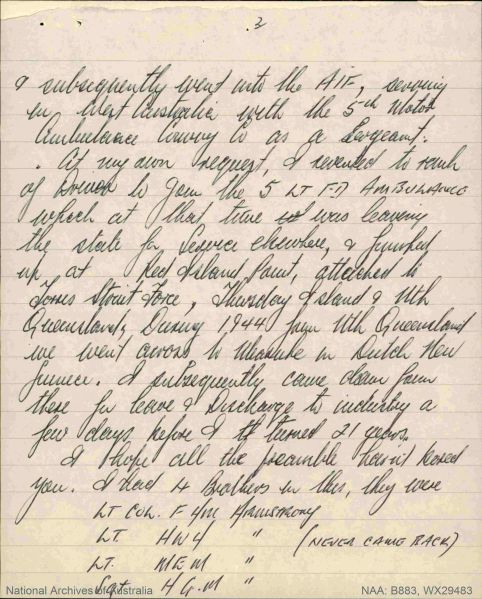 2
& subsequently went into the AIF, serving
in West Australia with the 5th Motor
Ambulance Convoy Co as a Sergeant.
At my own request, I reverted to rank
of Driver to join the 5 LT FD AMBULANCE
which at that time was leaving
the state for Service elsewhere, & finished
up at Red Island Point, attached to
Torres Strait Force, Thursday Island & Nth
Queensland. During 1944 from Nth Queensland
we went across to Merauke in Dutch New
Guinea. I subsequently came down from
there for leave & Discharge to industry a
few days before I turned 21 years.
I hope all the preamble hasn't bored
you. I had 4 Brothers in this, they were
LT COL. F ARMSTRONG
LT. "
(NEVER CAME BACK)
LT. M E M "
Sgt. "
National Archives of Australia
NAA: B883, WX29483